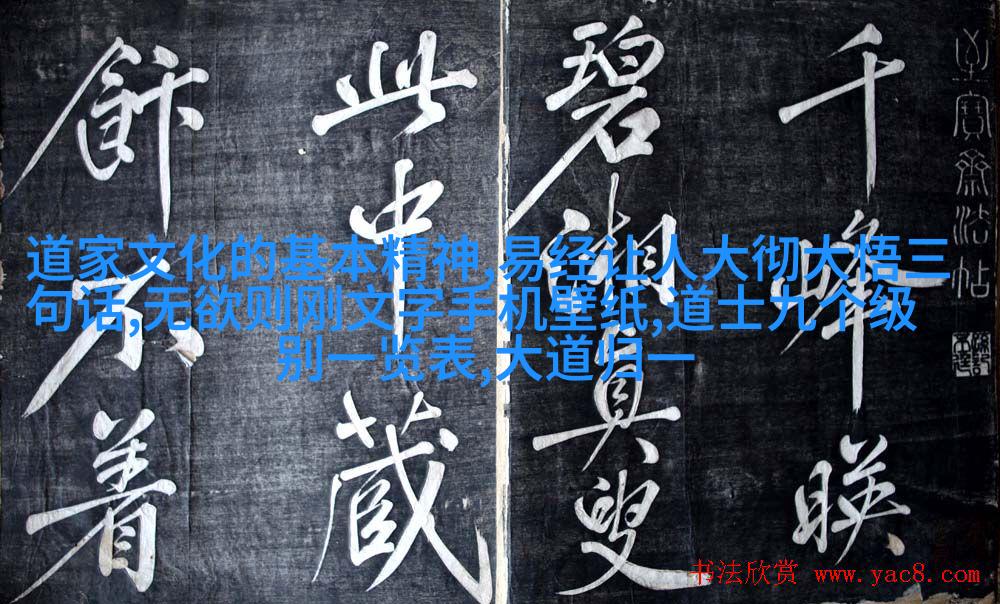 至寶齋法帖
千峰映
碧湘真叟
此中藏
飰不
道家文化的基本精神,易经让人大彻大悟三
句话,无欲则刚文字手机壁纸,道士九个级
别一览表,大道归一
书法欣赏 www.yac8.com